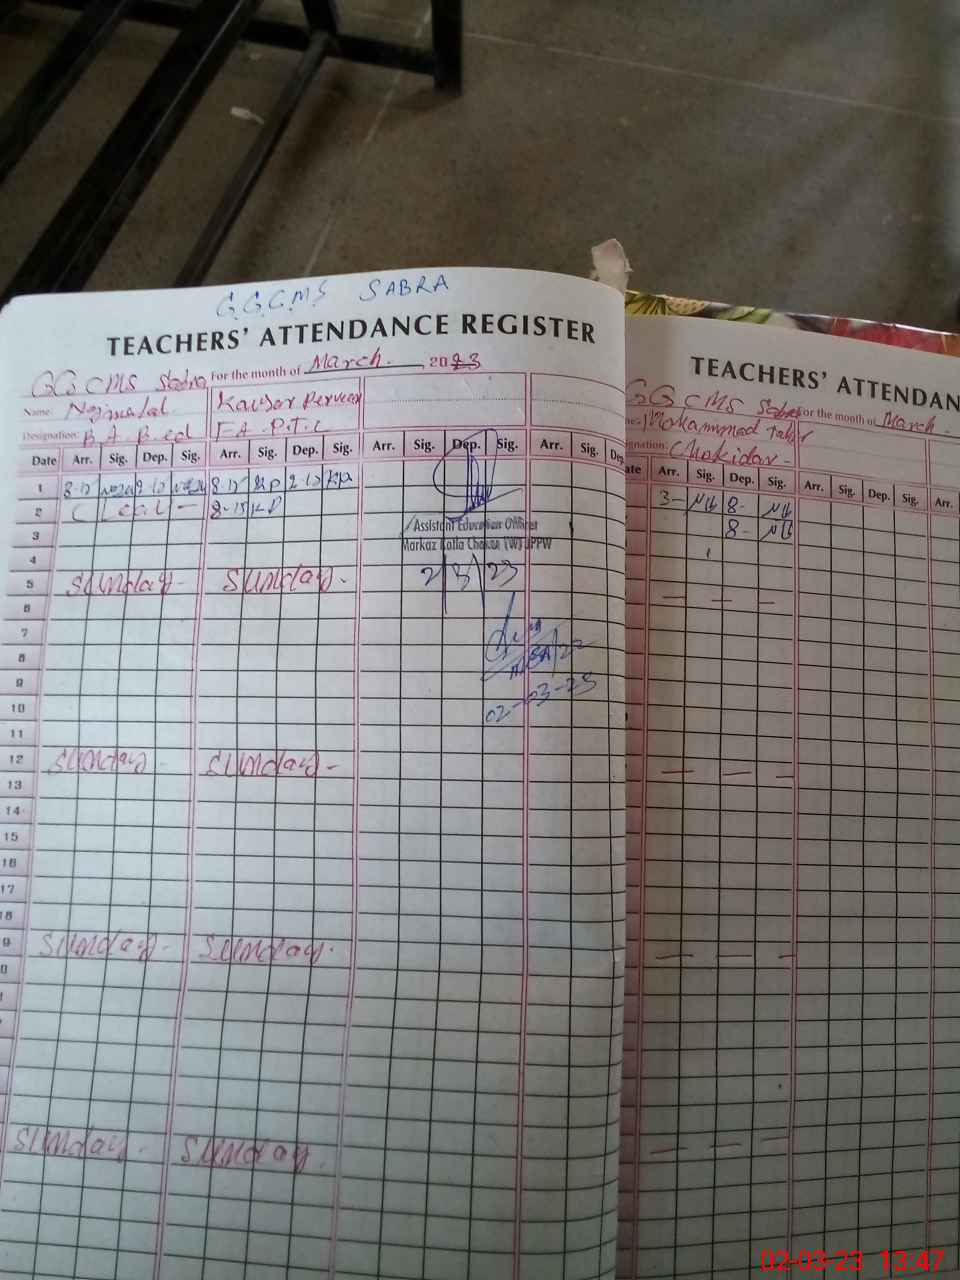 G.G.C.M.S SABRA
TEACHERS' ATTENDANCE REGISTER
GGCMS Sabra For the month of March. 2023
Name: Kausar Perveen
Designation: B.A B.ed F.A P.T.C
Date Arr. Sig. Dep. Sig. Arr. Sig. Dep. Sig. Arr. Sig. Dep. Sig. Arr. Sig. Dep.
1 8-15 2-15 8-15 KP 2-15 KP
2 8-15 KP
3
4
5 Sunday - Sunday -
6
7
8
9
10
11
12 Sunday - Sunday -
13
14
15
16
17
18
9 Sunday - Sunday.
0
Sunday - Sunday.
Assistant Education Officer
Markaz Kotla Chakar (W) JPPW
2/3/23
02-03-23
TEACHERS' ATTENDAN
GGCMS Sabra For the month of March.
Mohammad Tahir
gnation: Chokidar -
ate Arr. Sig. Dep. Sig. Arr. Sig. Dep. Sig. Arr.
3- 8-
8-
02-03-23 13:47